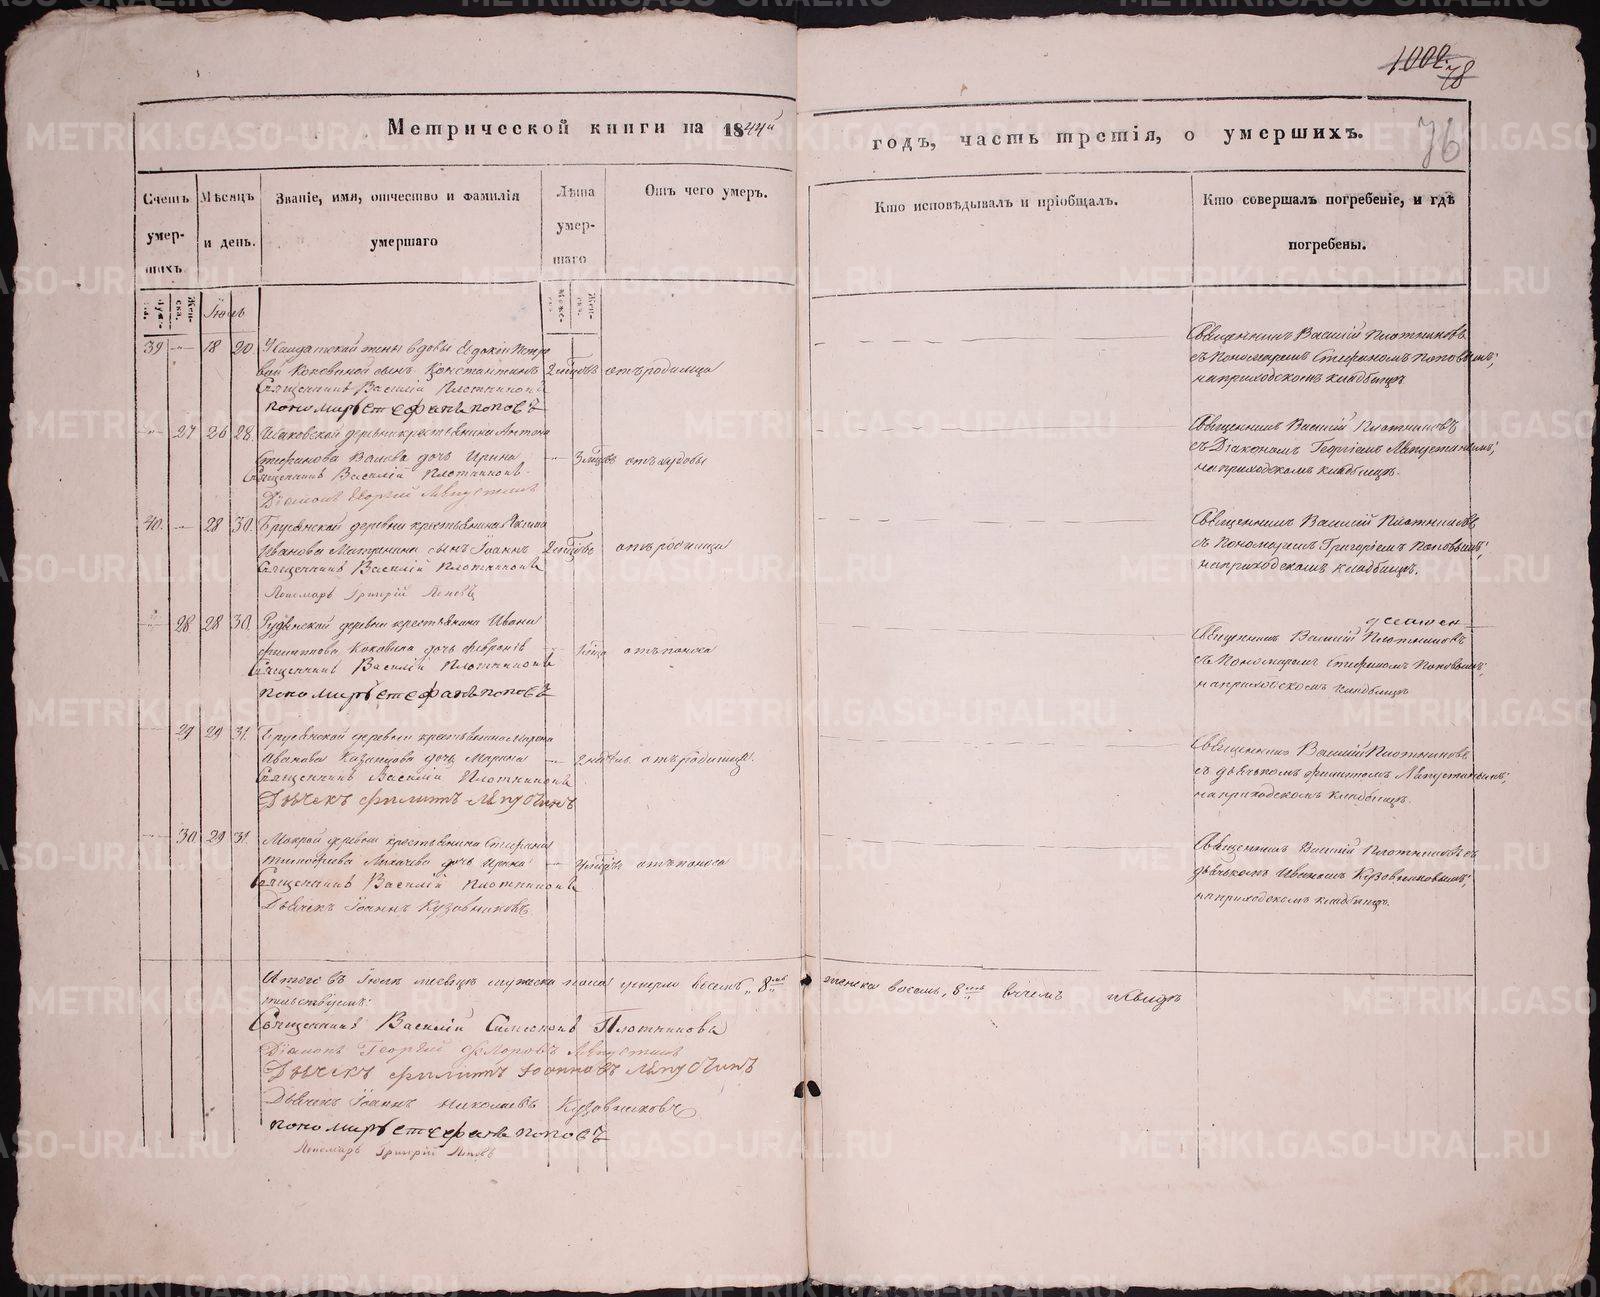 1002.
78
76
Метрической книги на 1844й
годъ, часть третія, о умершихъ.
Счетъ умер-шихъ.
Мѣсяцъ и день.
Званіе, имя, отчество и фамилія умершаго
Лѣта умер-шаго
Отъ чего умеръ.
Кто исповѣдывалъ и пріобщалъ.
Кто совершалъ погребеніе, и гдѣ погребены.
Муже-ска.
Жен-ска.
Іюль
Муже-
Жен-
39 18 20 Салдатской жены вдовы Евдокіи Петро
вой Коковиной сынъ Константинъ 2 мцовъ отъ родимца
Священникъ Василій Плотниковъ
пономарь стефанъ поповъ
Священникъ Василій Плотниковъ
съ Пономаремъ Стефаномъ Поповымъ;
на приходскомъ кладбищѣ
27 26 28 деревни крестьянина Антона
Стефанова дочь Ирина 3 мцовъ отъ
Священникъ Василій Плотниковъ
Діаконъ Георгій Лѣпустинъ
Священникъ Василій Плотниковъ
съ Діакономъ Георгіемъ Лѣпустинымъ;
на приходскомъ кладбищѣ.
40. 28 30 Брусянской деревни крестьянина
Иванова сынъ Іоаннъ 2 мцовъ отъ родимца
Священникъ Василій Плотниковъ
Пономарь Григорій Поповъ
Священникъ Василій Плотниковъ
съ Пономаремъ Григоріемъ Поповымъ;
на приходскомъ кладбищѣ.
28 28 30. деревни крестьянина Ивана
Филиппова Коковина дочь Февронія отъ поноса
Священникъ Василій Плотниковъ
пономарь стефанъ поповъ
Священникъ Василій Плотниковъ
съ Пономаремъ Стефаномъ Поповымъ;
на приходскомъ кладбищѣ
29 29 31. Брусянской деревни крестьянина
Иванова Казанцова дочь Марина отъ родимца.
Священникъ Василій Плотниковъ
Дьячекъ филиппъ Лѣпустинъ
Священникъ Василій Плотниковъ
съ дьячкомъ Филиппомъ Лѣпустинымъ;
на приходскомъ кладбищѣ.
30. 29 31. Мокрой деревни крестьянина Стефана
Тимофеева дочь Ирина отъ поноса
Священникъ Василій Плотниковъ
Дьячекъ Іоаннъ Кузовниковъ.
Священникъ Василій Плотниковъ съ
дьячкомъ Иваномъ Кузовниковымъ;
на приходскомъ кладбищѣ.
Итого въ Іюлѣ месяцѣ мужеска пола умерло восемь, 8мь женска восемь, 8мь въ чемъ и свидѣ
тельствуемъ:
Священникъ Василій Симеоновъ Плотниковъ
Діаконъ Георгій Флоровъ Лѣпустинъ
Дьячекъ филиппъ Іоанновъ Лѣпустинъ
Дьячекъ Іоаннъ Николаевъ Кузовниковъ
пономарь стефанъ поповъ
Пономарь Григорій Поповъ